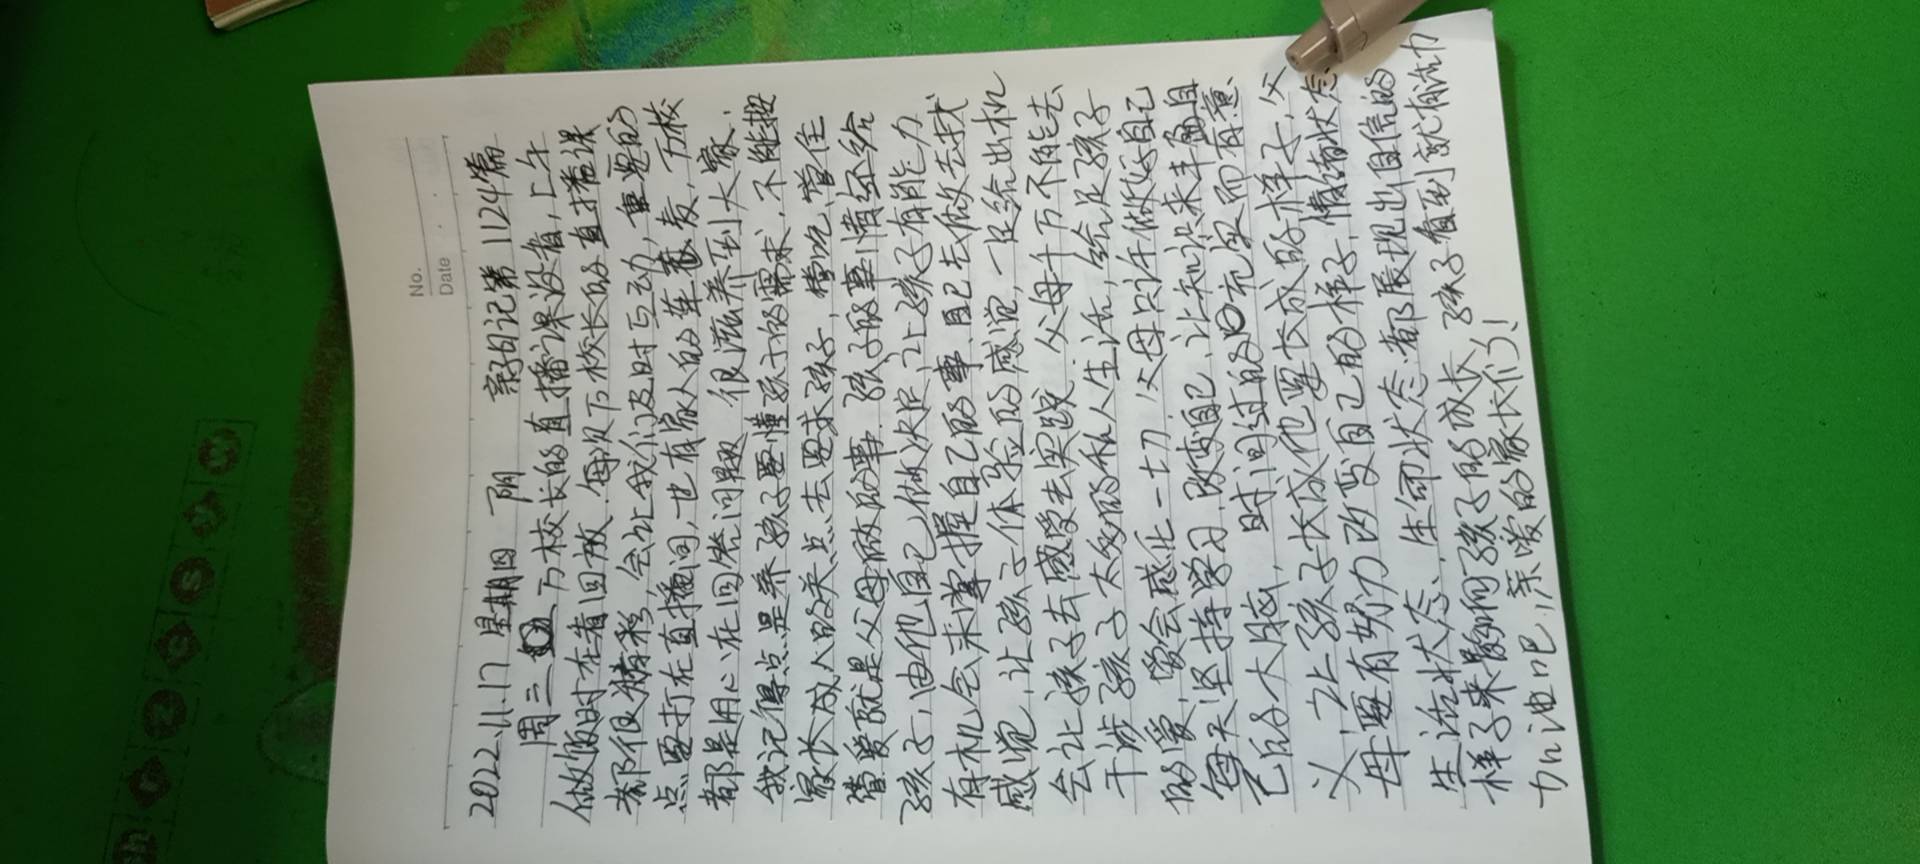 No.
Date
2022.11.17 星期四 阴 亲子日记第1124篇
周三 万校长的直播课没看,上午
做饭时在看回放.每次万校长的直播课
都很精彩,会让我们及时互动,重要的
点要打在直播间,也有家人的连麦,万校
都是用心在回答问题 很滋养到大家.
我记得点是养孩子要懂孩子的需求,不能按
家长成人的关点去要求孩子,管吃,管住
管爱就是父母做的事.孩子的事情还给
孩子,由他自己做决定,让孩子有能力
有机会来掌握自己的事.自己去做去找
感觉,让孩子体验的感觉,一定给出机
会让孩子去感受去实践.父母千万不能去
干涉孩子太多的私人生活,给足孩子
的爱,学会感化一切.父母只许做好自己
每天坚持学习.改变自己.让知识来丰富自
己的大脑, 时间过的充实而有意
义.让孩子长成他要长成的样子,父
母要有努力改变自己的样子.情绪状态
生活状态、生命状态.都展现出自信的
样子来影响孩子的成长 孩子看到就有活力
加油吧,亲爱的家长们!